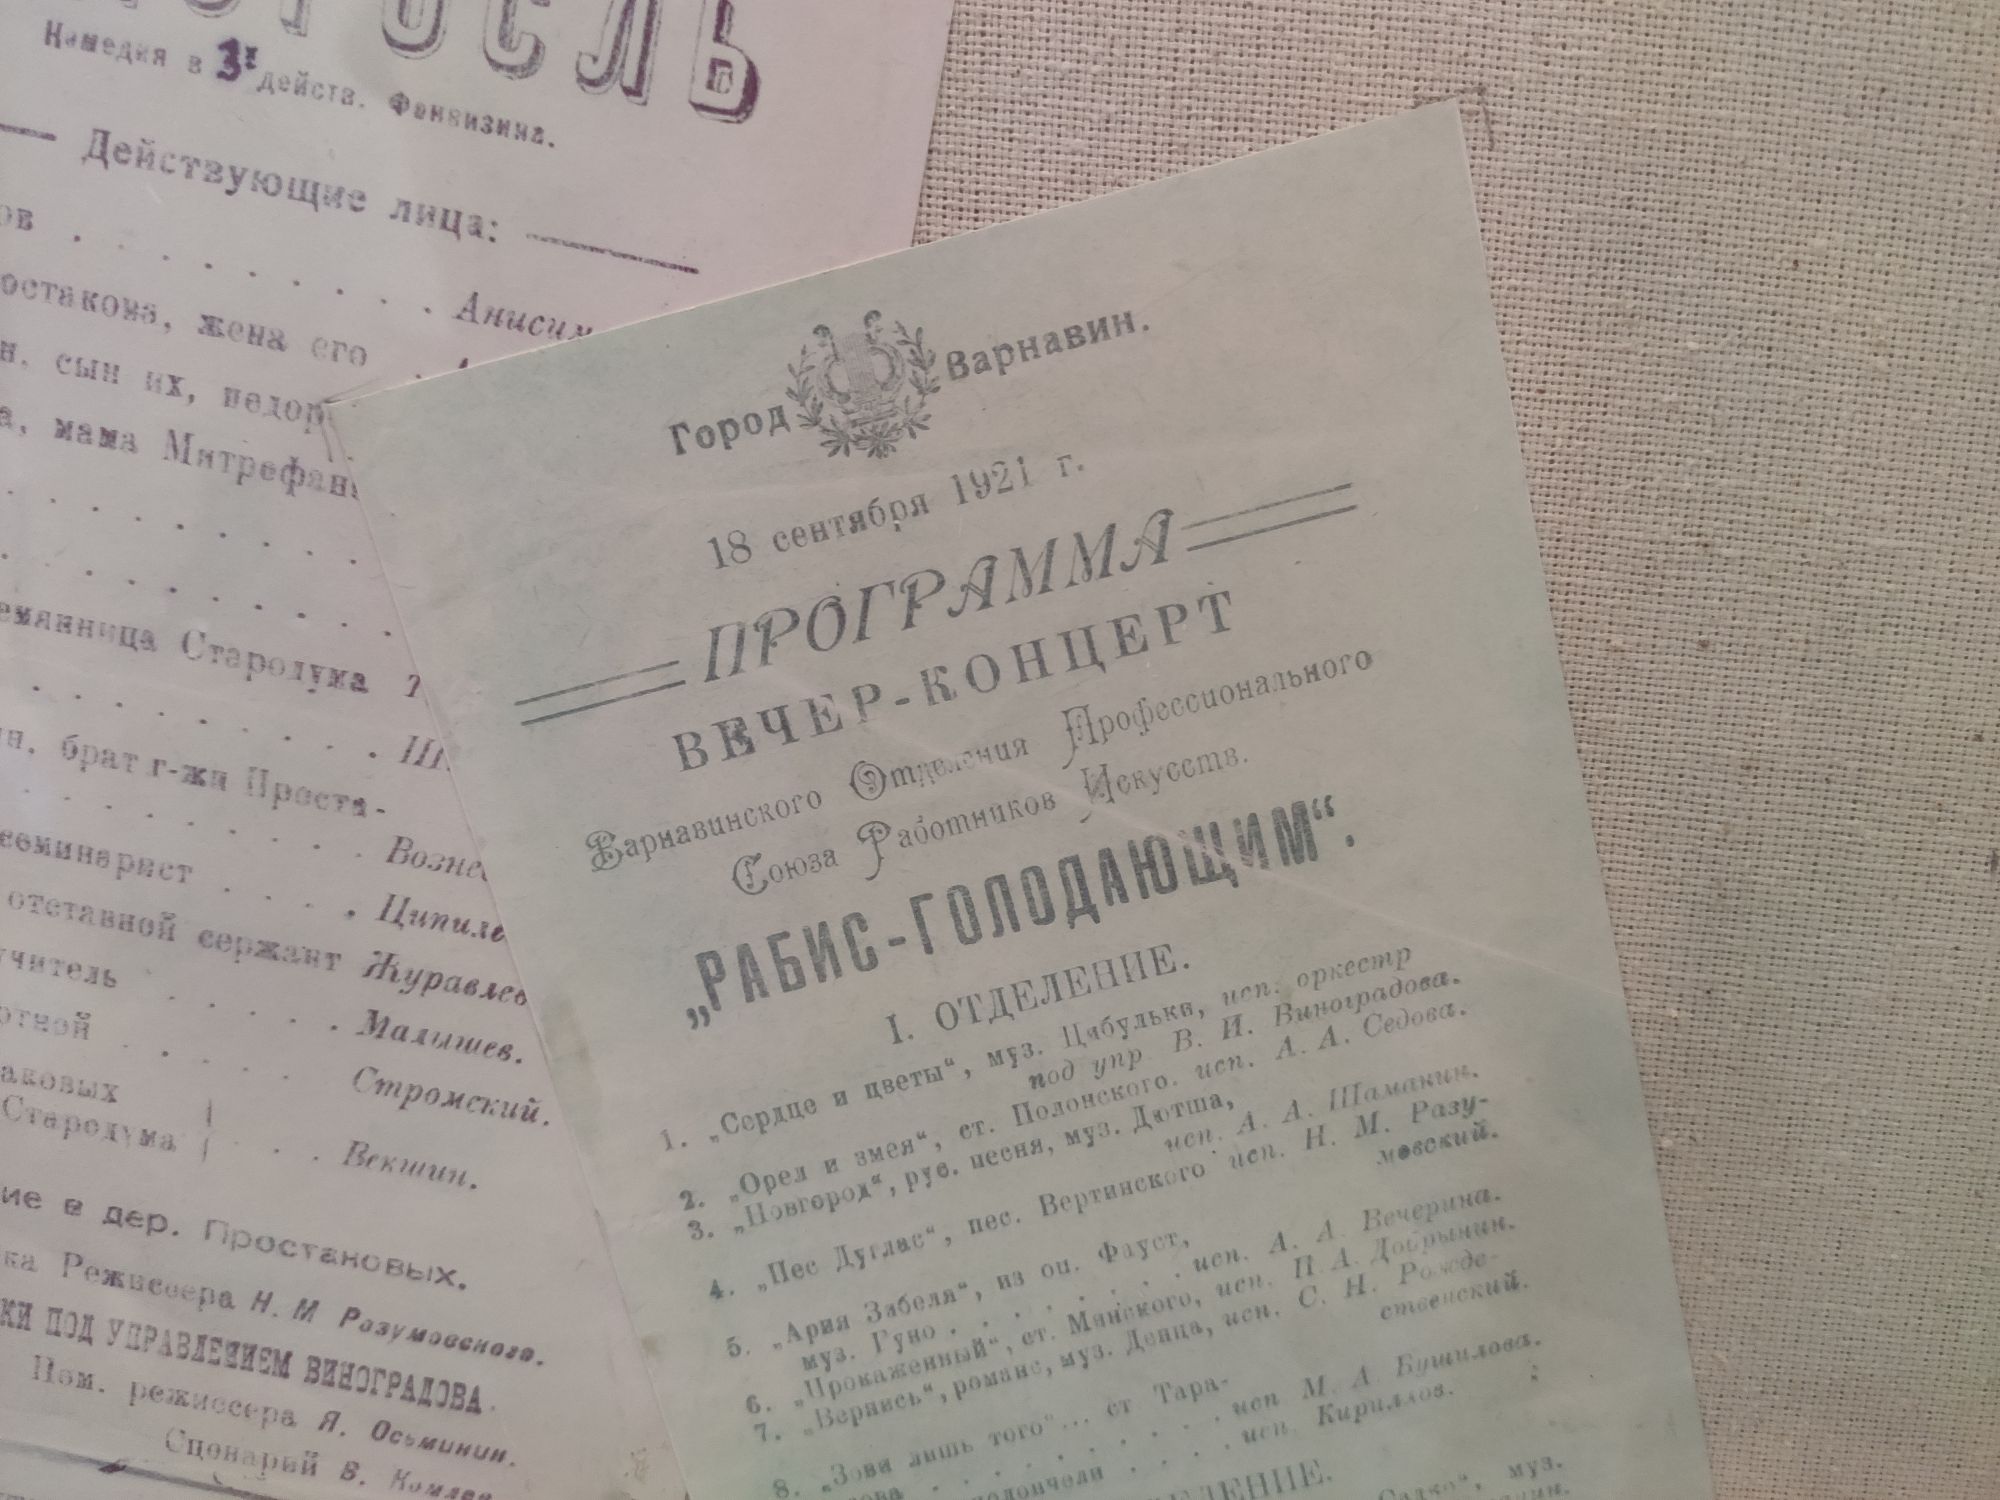 Комедия в 3х действ. Фонвизина.
Действующие лица:
Анисим
жена его
сын их,
мама Митрефан
Стародума
брат г-жи Проста-
Возне
семинарист
Ципиле
отставной сержант Журавлев
учитель
Малышев.
Стромский.
Стародума
Векшин.
в дер. Простановых.
Режиссера Н. М Разумовского.
ПОД УПРАВЛЕНИЕМ ВИНОГРАДОВА.
Пом. режиссера Я. Осьминин.
Сценарий В. Комлев
Город Варнавин.
18 сентября 1921 г.
ПРОГРАММА
ВЕЧЕР-КОНЦЕРТ
Варнавинского Отделения Профессионального
Союза Работников Искусств.
„РАБИС-ГОЛОДАЮЩИМ“.
I. ОТДЕЛЕНИЕ.
1. „Сердце и цветы“, муз. Цибульки, исп. оркестр
под упр. В. И. Виноградова.
2. „Орел и змея“, ст. Полонского. исп. А. А. Седова.
3. „Новгород“, рус. песня, муз. Дютша,
исп. А. А. Шаманин.
4. „Пес Дуглас“, пес. Вертинского исп. Н. М. Разу-
мовский.
5. „Ария Забеля“, из оп. Фауст,
муз. Гуно . . . . . . . исп. А. А. Вечерина.
6. „Прокаженный“, ст. Мянского, исп. П. А. Добрынин.
7. „Вернись“, романс, муз. Денца, исп. С. Н. Рожде-
ственский.
8. „Зови лишь того“... ст Тара-
сова . . . . . . . . . исп М. А. Бушилова.
исп. Кириллов.
муз.